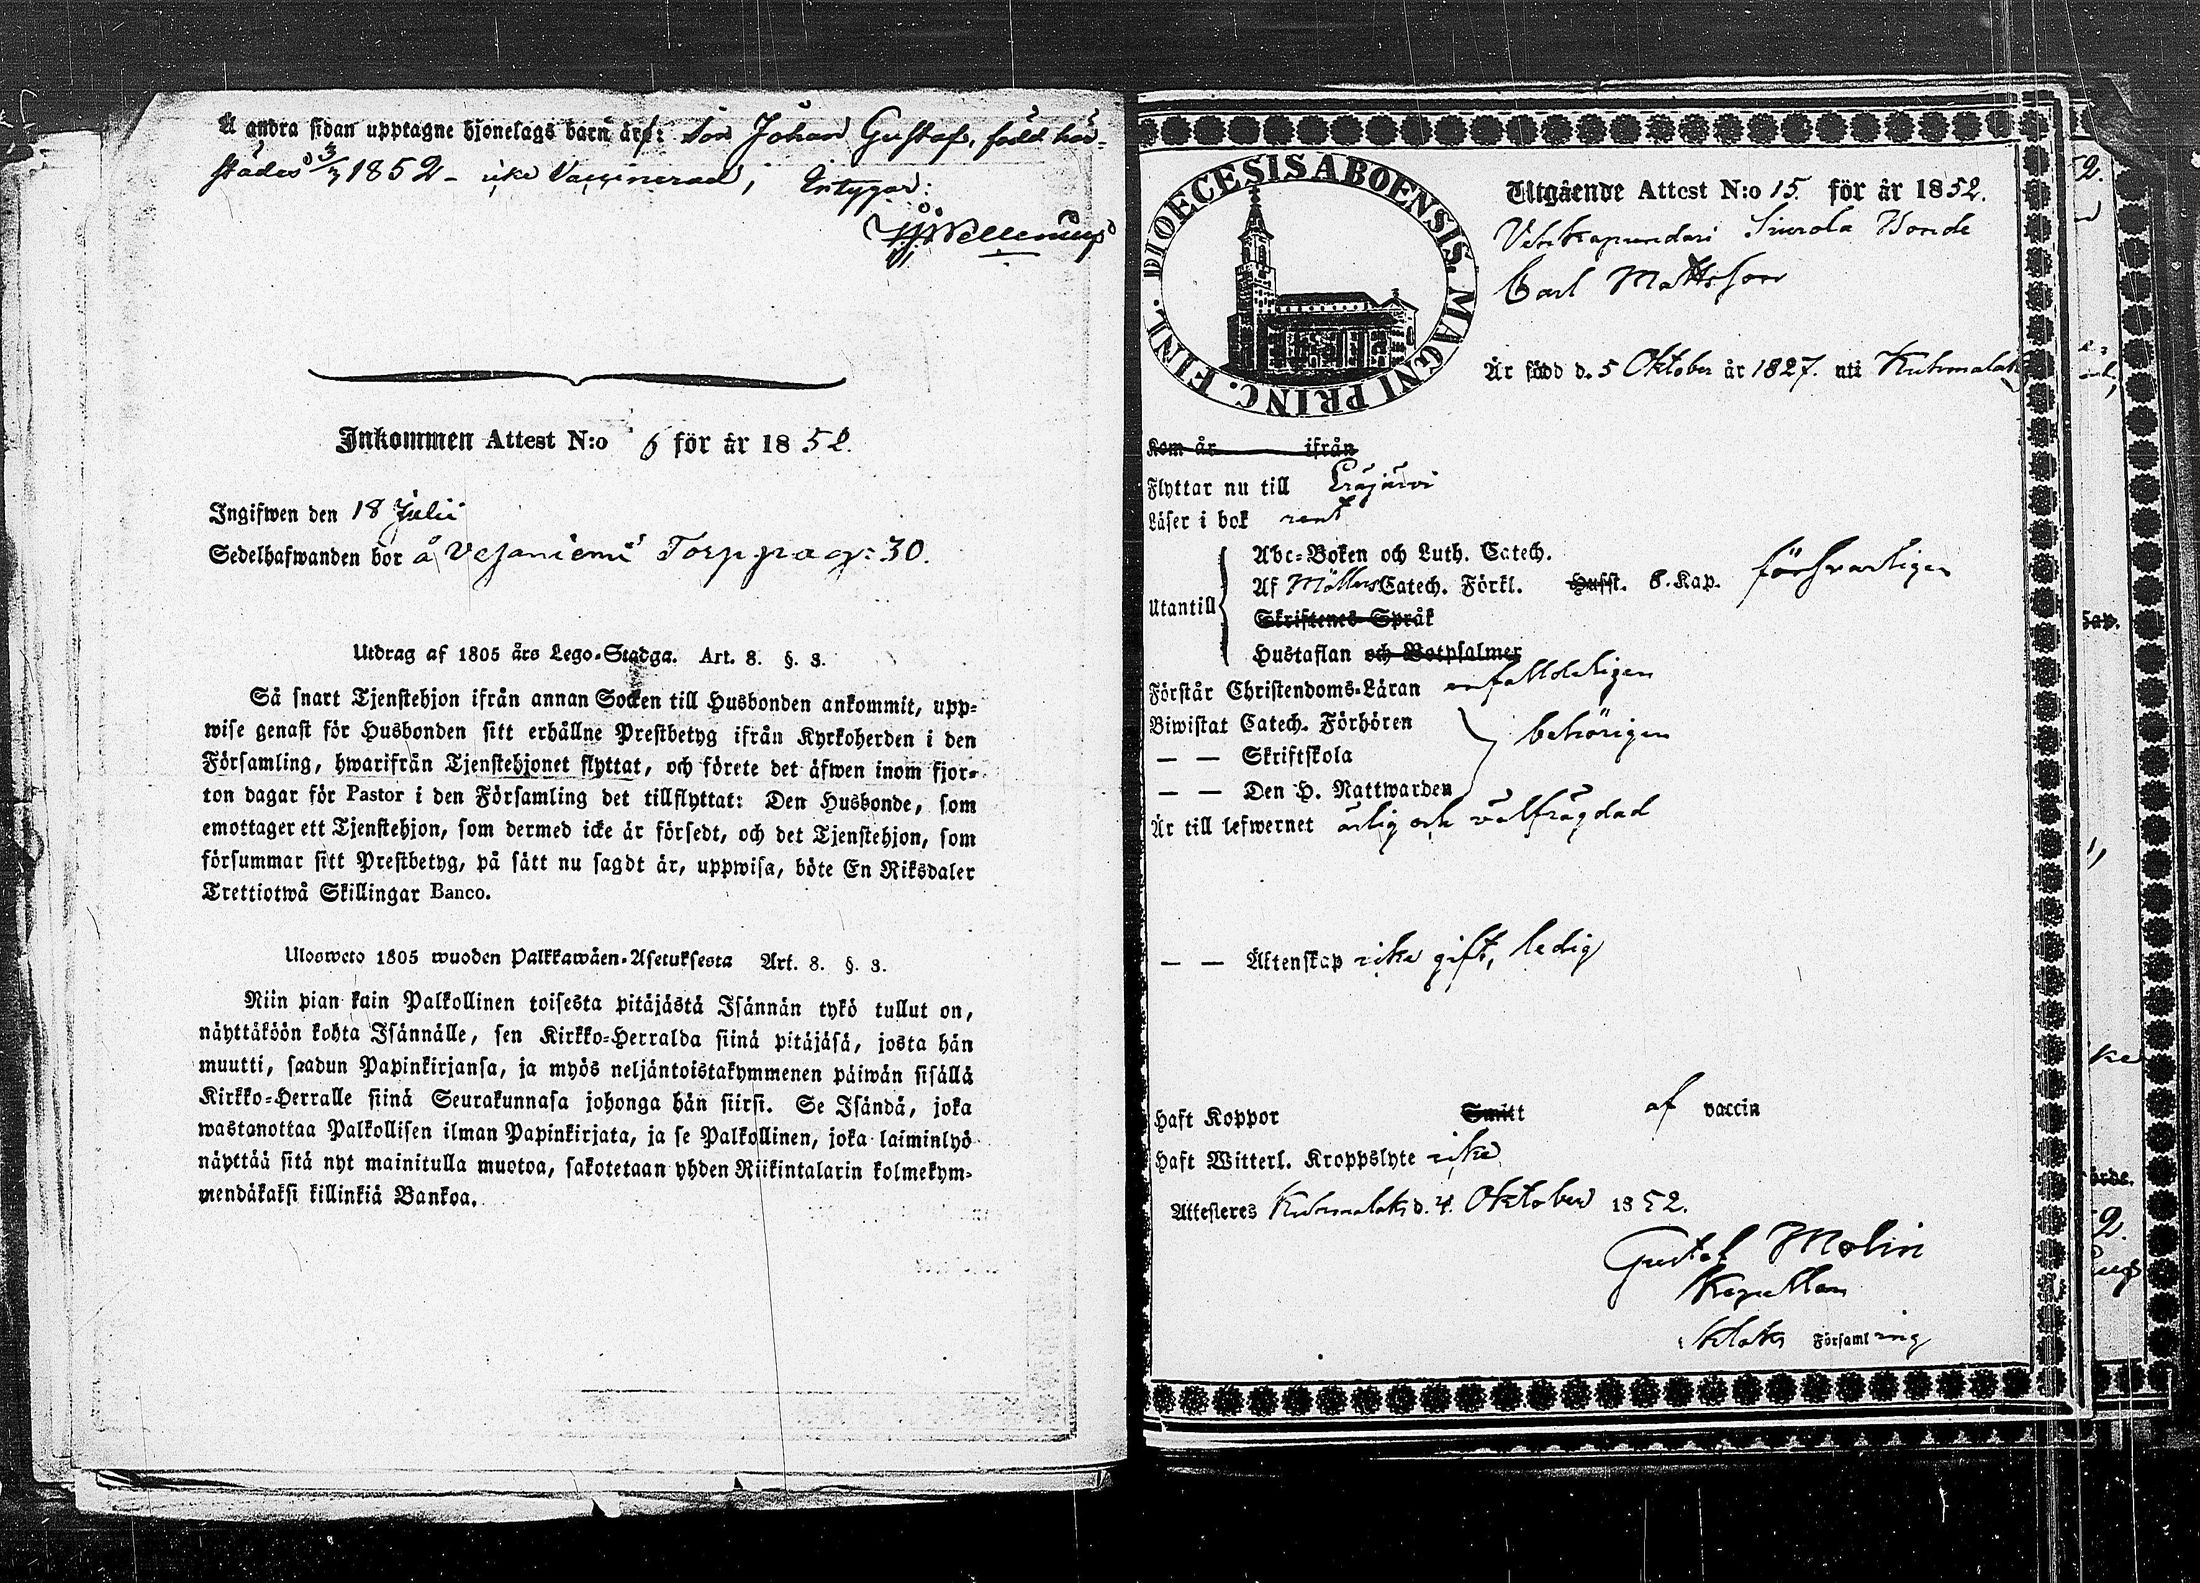 Å andra sidan upptagne hjonelags barn är: son Johan Gustaf, född här-
städes 3/7 1852 - icke Vaccinerad; Intygar:
Inkommen Attest N:o 6 för år 1852.
Ingifwen den 18 Julii
Sedelhafwanden bor å Vejaniemi Torp pag: 30.
Utdrag af 1805 års Lego-Stadga. Art. 8. §. 3.
Så snart Tjenstehjon ifrån annan Socken till Husbonden ankommit, upp-
wise genast för Husbonden sitt erhållne Prestbetyg ifrån Kyrkoherden i den
Församling, hwarifrån Tjenstehjonet flyttat, och förete det äfwen inom fjor-
ton dagar för Pastor i den Församling det tillflyttat: Den Husbonde, som
emottager ett Tjenstehjon, som dermed icke är försedt, och det Tjenstehjon, som
försummar sitt Prestbetyg, på sätt nu sagdt är, uppwisa, böte En Riksdaler
Trettiotwå Skillingar Banco.
Ulosweto 1805 wuoden Palkkawäen-Asetuksesta Art. 8. §. 3.
Niin pian kuin Palkollinen toisesta pitäjästä Isännän tykö tullut on,
näyttäköön kohta Isännälle, sen Kirkko-Herralda siinä pitäjäsä, josta hän
muutti, saadun Papinkirjansa, ja myös neljäntoistakymmenen päiwän sisällä
Kirkko-Herralle siinä Seurakunnasa johonga hän siirsi. Se Isändä, joka
wastanottaa Palkollisen ilman Papinkirjata, ja se Palkollinen, joka laiminlyö
näyttää sitä nyt mainitulla muotoa, sakotetaan yhden Riikintalarin kolmekym-
mendäkaksi killinkiä Bankoa.
DIOECESIS ABOENSIS. MAGNI PRINC. FINL.
Utgående Attest N:o 15. för år 1852.
Vehkapundari Siurola Bonde
Carl Mattsson
Är född d. 5 Oktober år 1827. uti Kuhmalaks
Kom år ifrån
Flyttar nu till Eräjärvi
Läser i bok rent
Utantill
Abc-Boken och Luth. Catech.
Af Möllers Catech. Förkl. Husst. 8. Kap. försvarligen
Skriftenes Språk
Hustaflan och Botpsalmer
Förstår Christendoms-Läran enfalldeligen
Biwistat Catech. Förhören
— — Skriftskola behörigen
— — Den H. Nattwarden
Är till lefwernet ärlig och välfrägdad
— — Äktenskap icke gift, ledig
Haft Koppor Smitt af vaccin
Haft Witterl. Kroppslyte icke
Attesteres Kuhmalaks d. 4. Oktober 1852.
Gustaf Molin
Kapellan
Församling